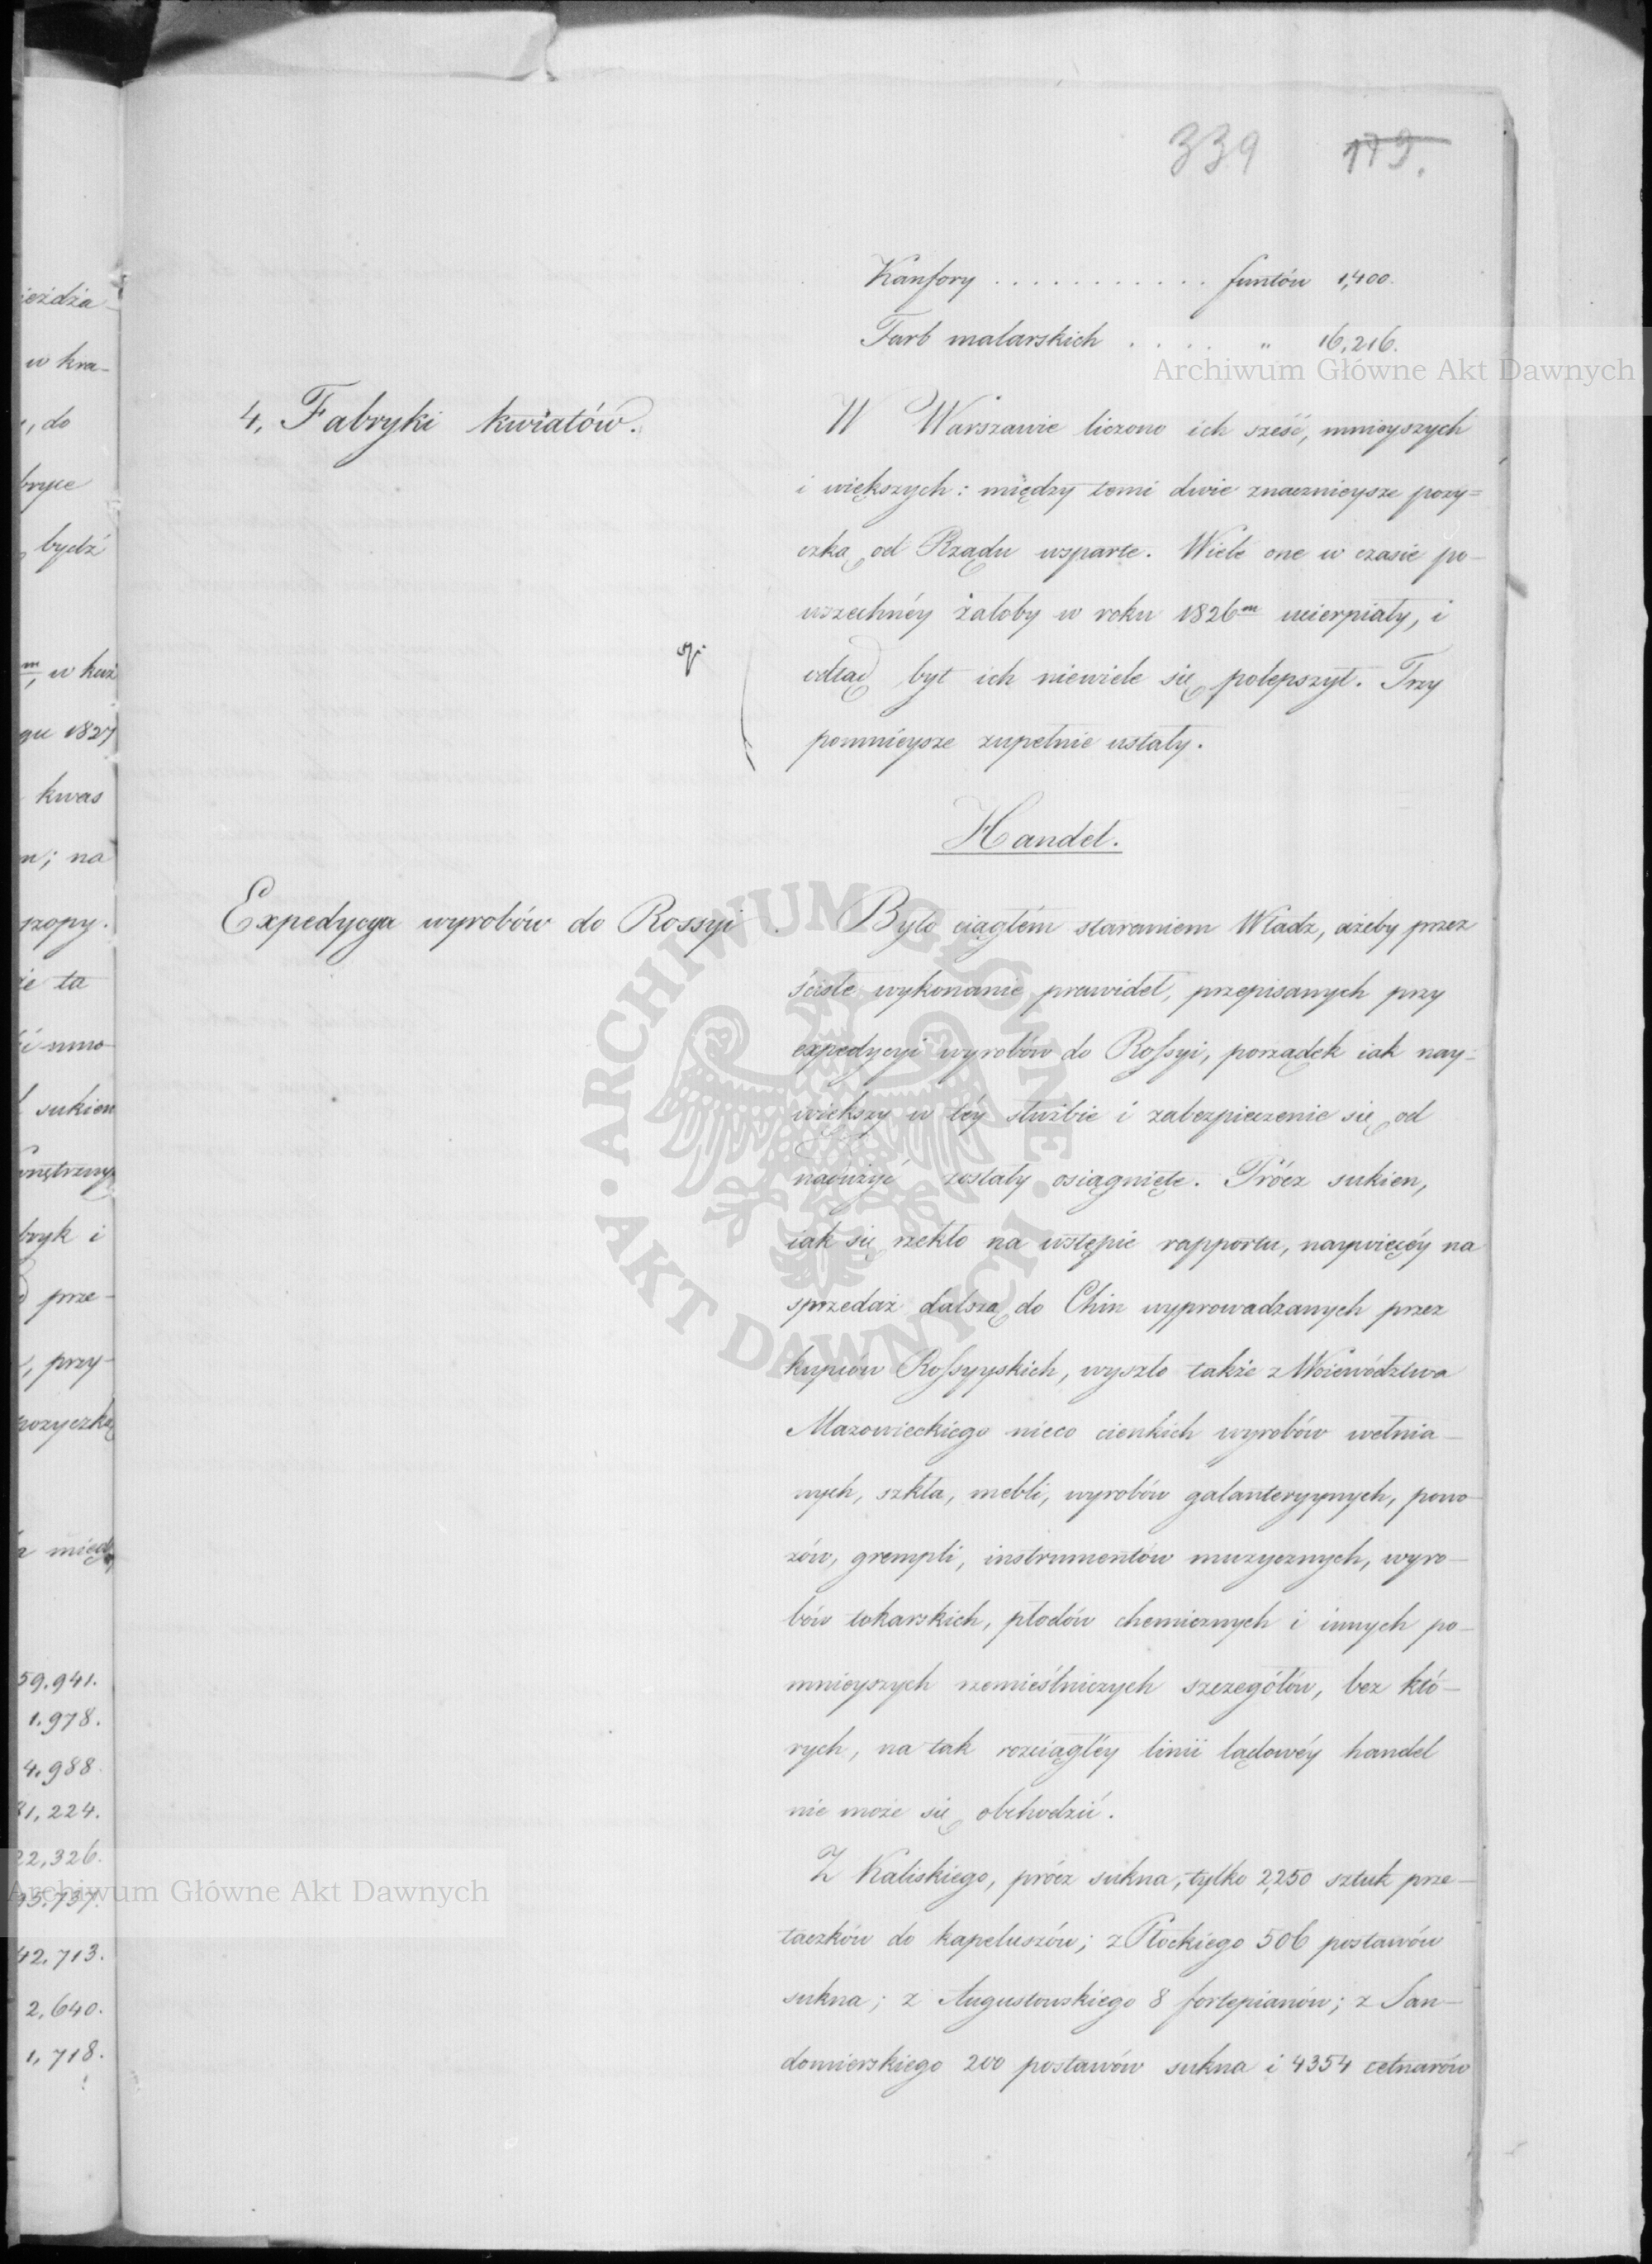 339 179.
Kanfory . . . . . . . . . . . funtów 1,400.
Farb malarskich . . . . " 16,216.
Archiwum Główne Akt Dawnych
4, Fabryki kwiatów.
W Warszawie liczono ich sześć, mnieyszych
i większych: między temi dwie znacznieysze pozy=
czką od Rządu wsparte. Wiele one w czasie po-
wszechnéy żałoby w roku 1826m ucierpiały, i
odtąd byt ich niewiele się polepszył. Trzy
pomnieysze zupełnie ustały.
Handel.
Expedycya wyrobów do Rossyi.
Było ciągłém staraniem Władz, ażeby przez
ścisłe wykonanie prawideł, przepisanych przy
expedycyi wyrobów do Rossyi, porządek iak nay=
większy w téy służbie i zabezpieczenie się od
nadużyć zostały osiągnięte. Prócz sukien,
iak się rzekło na wstępie rapportu, naywięcéy na
sprzedaż dalszą do Chin wyprowadzanych przez
kupców Rossyyskich, wyszło także z Woiewództwa
Mazowieckiego nieco cienkich wyrobów wełnia-
nych, szkła, mebli, wyrobów galanteryynych, powo-
zów, grempli, instrumentów muzycznych, wyro-
bów tokarskich, płodów chemicznych i innych po-
mnieyszych rzemieślniczych szczegółów, bez któ-
rych, na tak rozciągłéy linii lądowéy handel
nie może się obchodzić.
Z Kaliskiego, prócz sukna, tylko 2,250 sztuk prze-
taczków do kapeluszów; z Płockiego 506 postawów
sukna; z Augustowskiego 8 fortepianów; z San-
domierskiego 200 postawów sukna i 4354 cetnarów
ieżdża
w kra-
, do
bryce
bydź
m, w kwa
gu 1827
kwas
n; na
szopy.
że ta
i umo-
sukien
wnętrzny
bryk i
prze-
, przy-
pożyczką
między
59.941.
1.978.
4.988.
81,224.
22,326.
95.737.
Archiwum Główne Akt Dawnych
42,713.
2,640.
1,718.
ARCHIWUM GŁÓWNE · AKT DAWNYCH ·